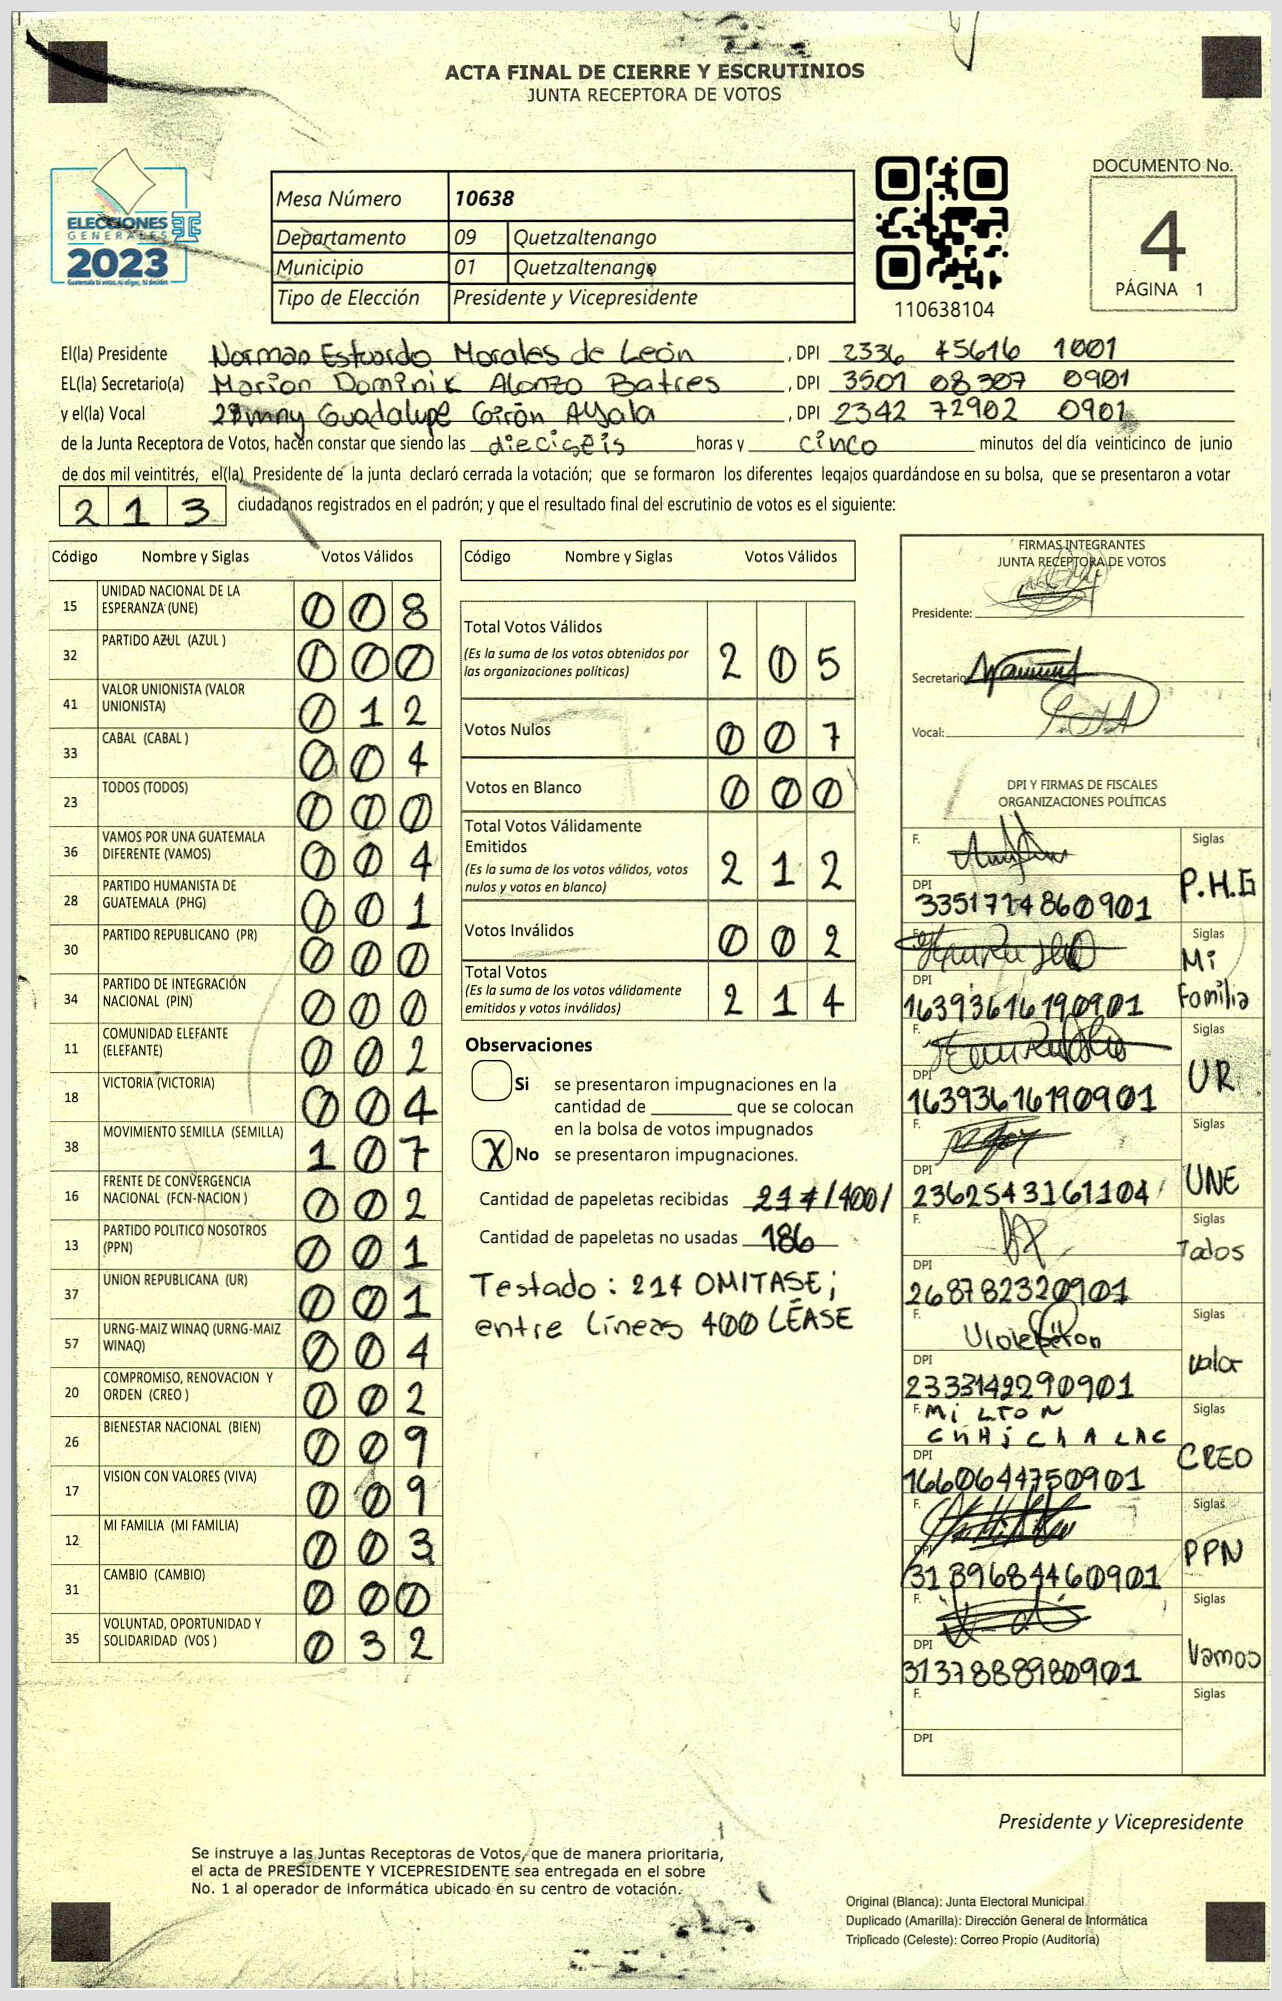 ACTA FINAL DE CIERRE Y ESCRUTINIOS
JUNTA RECEPTORA DE VOTOS
ELECCIONES
GENERALES
2023
Guatemala tú votas, tú eliges, tú decides
Mesa Número 10638
Departamento 09 Quetzaltenango
Municipio 01 Quetzaltenango
Tipo de Elección Presidente y Vicepresidente
110638104
DOCUMENTO No.
4
PÁGINA 1
El(la) Presidente Norman Estuardo Morales de León , DPI 2336 45616 1001
EL(la) Secretario(a) Marion Dominik Alonzo Batres , DPI 3501 08307 0901
y el(la) Vocal Guadalupe Girón Ayala , DPI 2342 72902 0901
de la Junta Receptora de Votos, hacen constar que siendo las dieciseis horas y cinco minutos del día veinticinco de junio
de dos mil veintitrés, el(la) Presidente de la junta declaró cerrada la votación; que se formaron los diferentes legajos guardándose en su bolsa, que se presentaron a votar
213 ciudadanos registrados en el padrón; y que el resultado final del escrutinio de votos es el siguiente:
Código Nombre y Siglas Votos Válidos
15 UNIDAD NACIONAL DE LA ESPERANZA (UNE) 008
32 PARTIDO AZUL (AZUL ) 000
41 VALOR UNIONISTA (VALOR UNIONISTA) 012
33 CABAL (CABAL ) 004
23 TODOS (TODOS) 000
36 VAMOS POR UNA GUATEMALA DIFERENTE (VAMOS) 004
28 PARTIDO HUMANISTA DE GUATEMALA (PHG) 001
30 PARTIDO REPUBLICANO (PR) 000
34 PARTIDO DE INTEGRACIÓN NACIONAL (PIN) 000
11 COMUNIDAD ELEFANTE (ELEFANTE) 002
18 VICTORIA (VICTORIA) 004
38 MOVIMIENTO SEMILLA (SEMILLA) 107
16 FRENTE DE CONVERGENCIA NACIONAL (FCN-NACION ) 002
13 PARTIDO POLITICO NOSOTROS (PPN) 001
37 UNION REPUBLICANA (UR) 001
57 URNG-MAIZ WINAQ (URNG-MAIZ WINAQ) 004
20 COMPROMISO, RENOVACION Y ORDEN (CREO ) 002
26 BIENESTAR NACIONAL (BIEN) 009
17 VISION CON VALORES (VIVA) 009
12 MI FAMILIA (MI FAMILIA) 003
31 CAMBIO (CAMBIO) 000
35 VOLUNTAD, OPORTUNIDAD Y SOLIDARIDAD (VOS ) 032
Código Nombre y Siglas Votos Válidos
Total Votos Válidos 205
(Es la suma de los votos obtenidos por
las organizaciones políticas)
Votos Nulos 007
Votos en Blanco 000
Total Votos Válidamente
Emitidos 212
(Es la suma de los votos válidos, votos
nulos y votos en blanco)
Votos Inválidos 002
Total Votos 214
(Es la suma de los votos válidamente
emitidos y votos inválidos)
Observaciones
Si se presentaron impugnaciones en la
cantidad de ________ que se colocan
en la bolsa de votos impugnados
X No se presentaron impugnaciones.
Cantidad de papeletas recibidas 214/400/
Cantidad de papeletas no usadas 186
Testado: 214 OMITASE;
entre líneas 400 LÉASE
FIRMAS INTEGRANTES
JUNTA RECEPTORA DE VOTOS
Presidente:
Secretario
Vocal:
DPI Y FIRMAS DE FISCALES
ORGANIZACIONES POLÍTICAS
F. Siglas
DPI 3351714860901 P.H.G
Siglas
DPI 1639361670901 Mi Familia
F. Siglas
DPI 1639361690901 UR
F. Siglas
DPI 2362543161104 UNE
F. Siglas
DPI 268782320901 Todos
F. Siglas
DPI 2333142290901 Valor
F. MiLTON Siglas
DPI 1660644750901 CREO
F. Siglas
DPI 3189684460901 PPN
F. Siglas
DPI 3137888980901 Vamos
F. Siglas
DPI
Presidente y Vicepresidente
Se instruye a las Juntas Receptoras de Votos, que de manera prioritaria,
el acta de PRESIDENTE Y VICEPRESIDENTE sea entregada en el sobre
No. 1 al operador de informática ubicado en su centro de votación.
Original (Blanca): Junta Electoral Municipal
Duplicado (Amarilla): Dirección General de Informática
Triplicado (Celeste): Correo Propio (Auditoría)